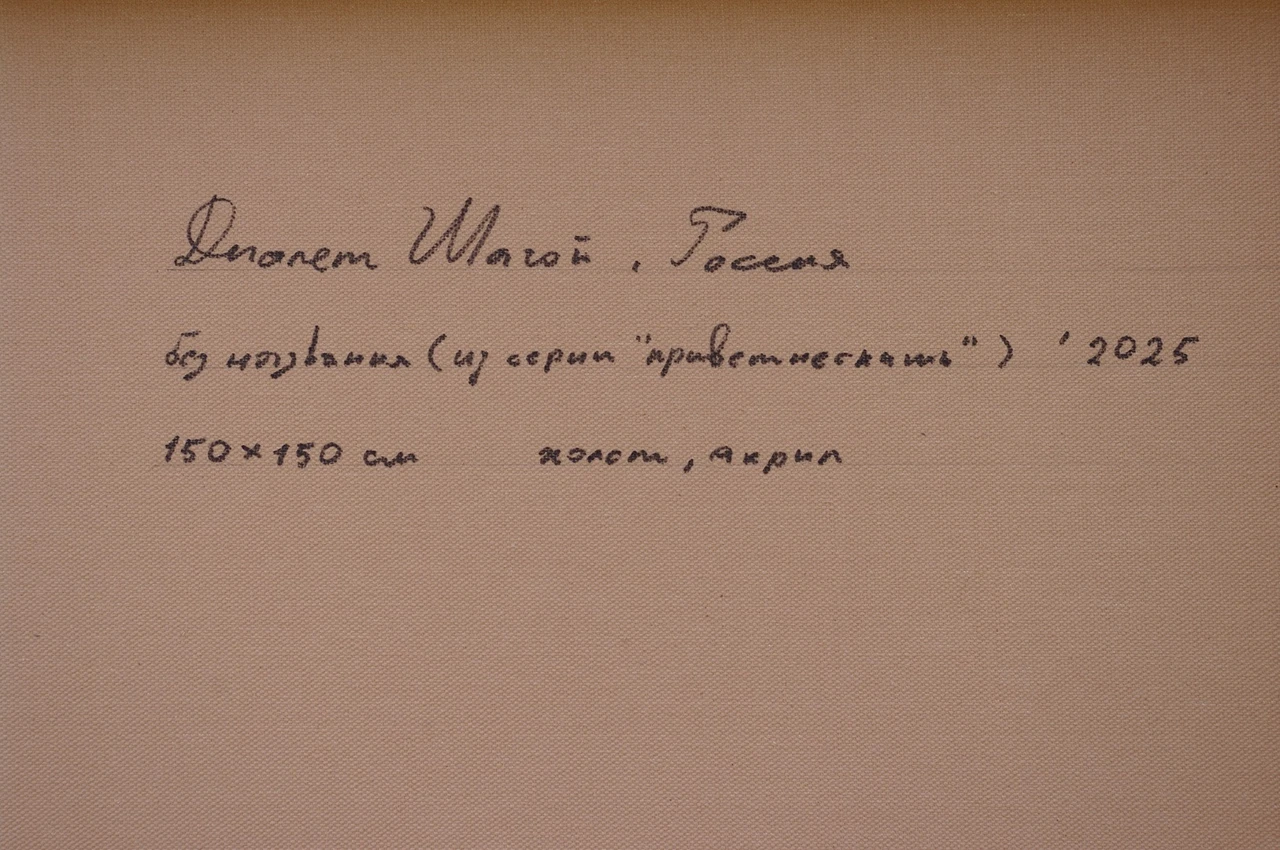 Диалет Шагой, Россия
без названия (из серии "приветнескашь") ' 2025
150×150 см холст, акрил